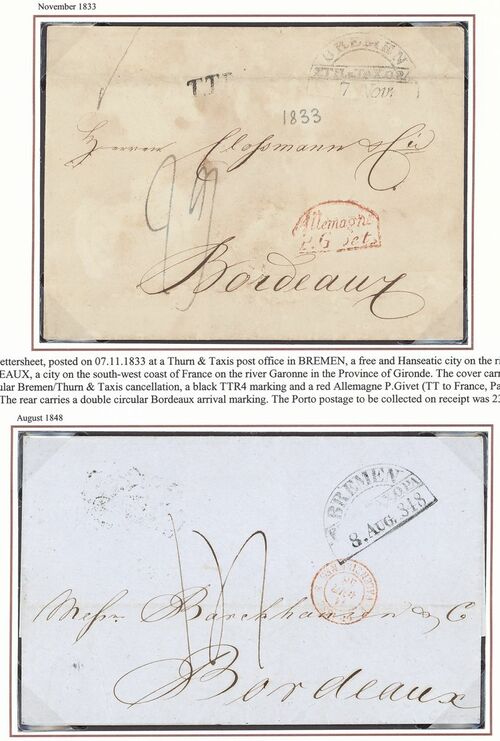 November 1833
BREMEN
TH.&TAX.O.PA.
7 Nov.
1833
Herren Clossmann & Cie
23
Allemagne
P. Givet
Bordeaux
ettersheet, posted on 07.11.1833 at a Thurn & Taxis post office in BREMEN, a free and Hanseatic city on the ri
EAUX, a city on the south-west coast of France on the river Garonne in the Province of Gironde. The cover carr
ular Bremen/Thurn & Taxis cancellation, a black TTR4 marking and a red Allemagne P.Givet (TT to France, Pa
The rear carries a double circular Bordeaux arrival marking. The Porto postage to be collected on receipt was 23
August 1848
BREMEN
8. AUG. 848
Messrs Barckhausen & C
Bordeaux